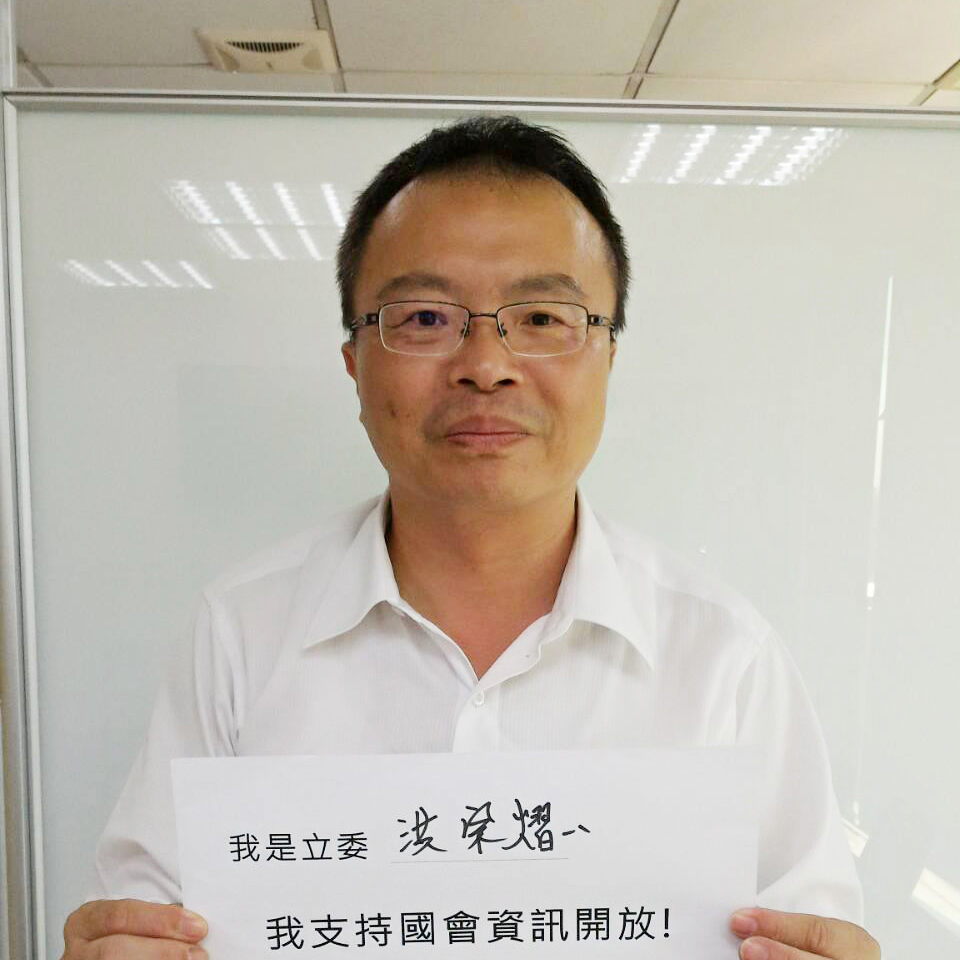 我是立委 洪榮熠
我支持國會資訊開放!